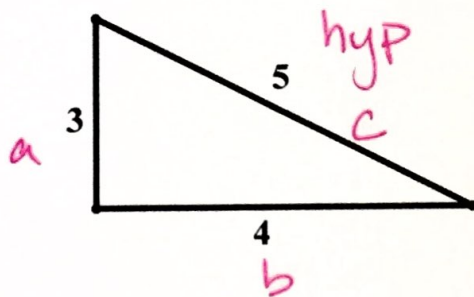 hyp
5
c
3
a
4
b